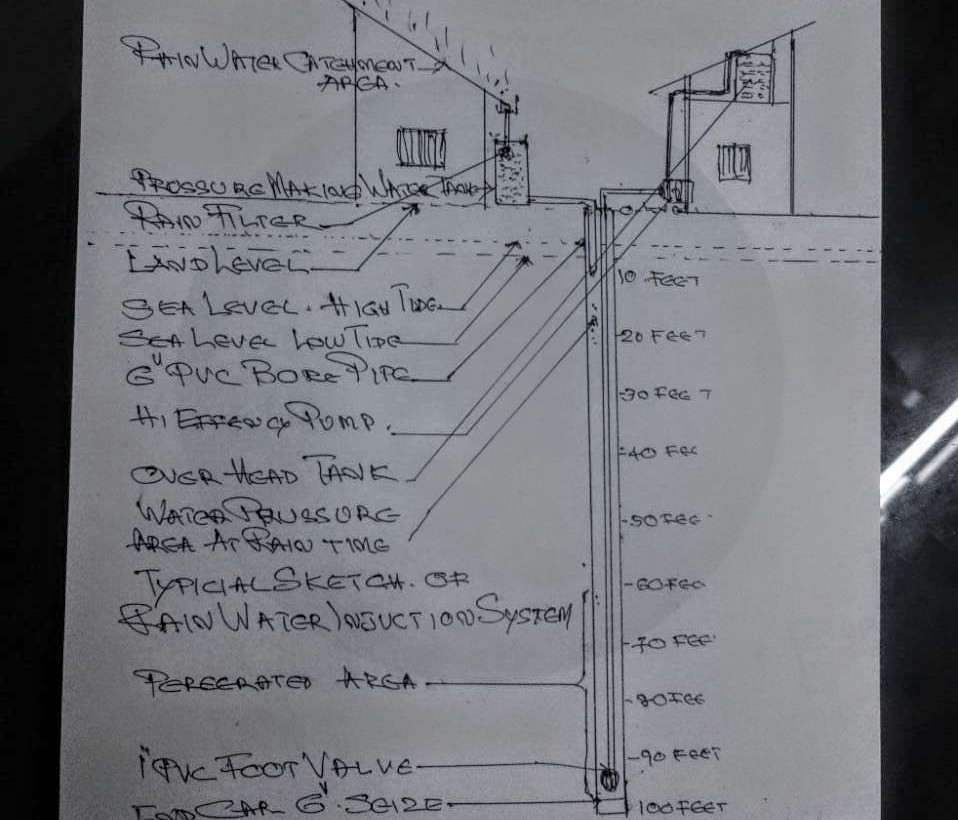 RAIN WATER CATCHMENT
AREA.
PROSSURE MAKING WATER TANK
RAIN FILTER
LAND LEVEL
SEA LEVEL. HIGH TIDE
SEA LEVEL LOW TIDE
6" PVC BORE PIPE
HI EFFENCY PUMP.
OVER HEAD TANK
WATER PRUSSURE
AREA AT RAIN TIME
TYPICIAL SKETCH. OF
RAIN WATER INJUCTION SYSTEM
PERFERATED AREA
1" PVC FOOT VALVE
END CAP 6" SEIZE
0
10 FEET
20 FEET
30 FEET
40 FEE
50 FEE
60 FEE
70 FEE
80 FEE
90 FEET
100 FEET